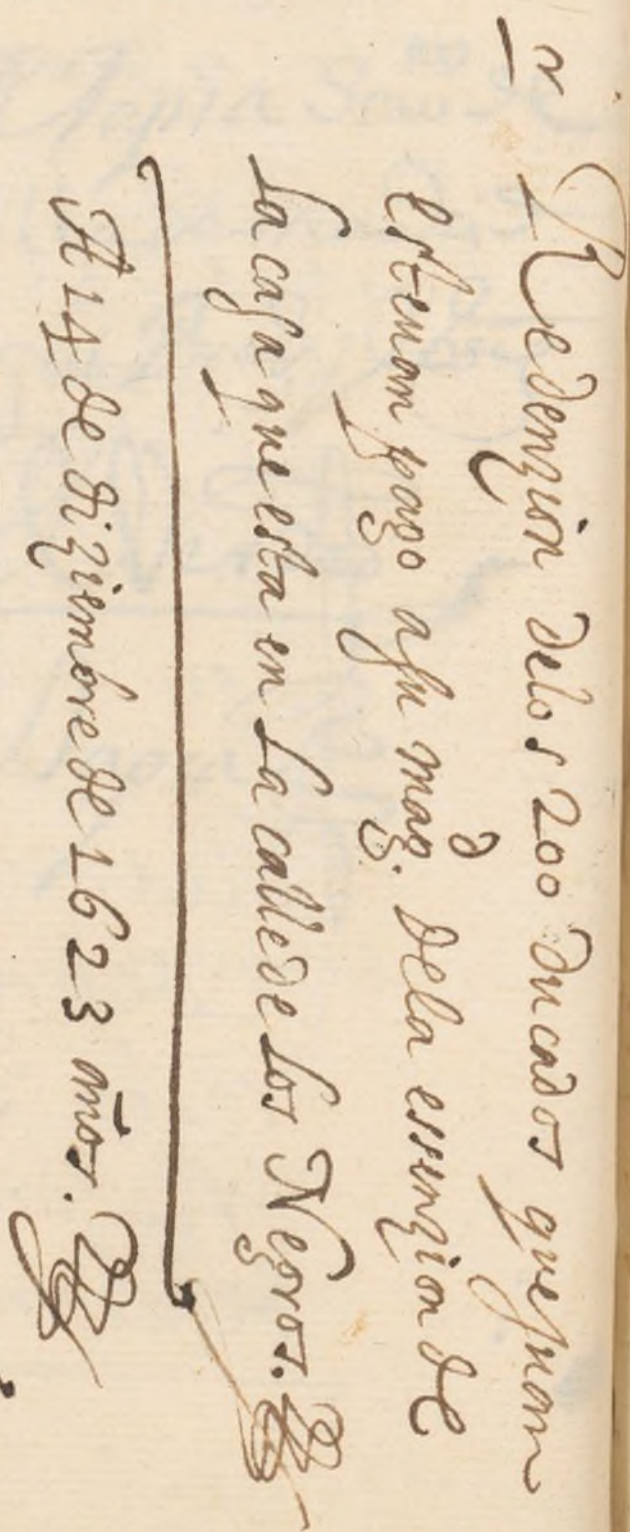 Redenzion delos 200 ducados que Juan
esteuan pago asu magd. dela essenzion de
la casa que esta en la calle de los Negros.
A 14 de diziembre de 1623 años.